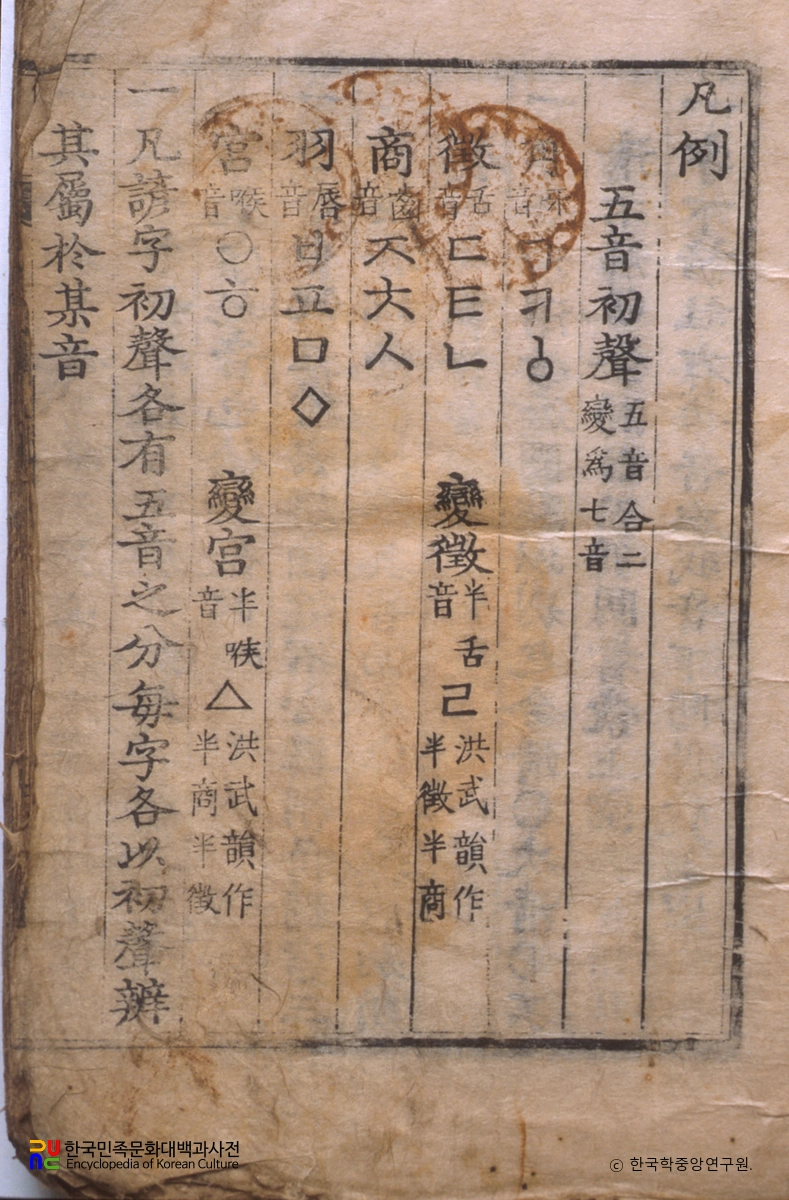 凡例
五音初聲 五音合二變爲七音
角 牙音 ㄱㅋㆁ
徵 舌音 ㄷㅌㄴ 變徵 半舌音 ㄹ 洪武韻作半徵半商
商 齒音 ㅈㅊㅅ
羽 脣音 ㅂㅍㅁ◇
宮 喉音 ㅇㅎ 變宮 半喉音 △ 洪武韻作半商半徵
一凡諺字初聲各有五音之分每字各以初聲辨
其屬於某音
한국민족문화대백과사전
Encyclopedia of Korean Culture
ⓒ 한국학중앙연구원.